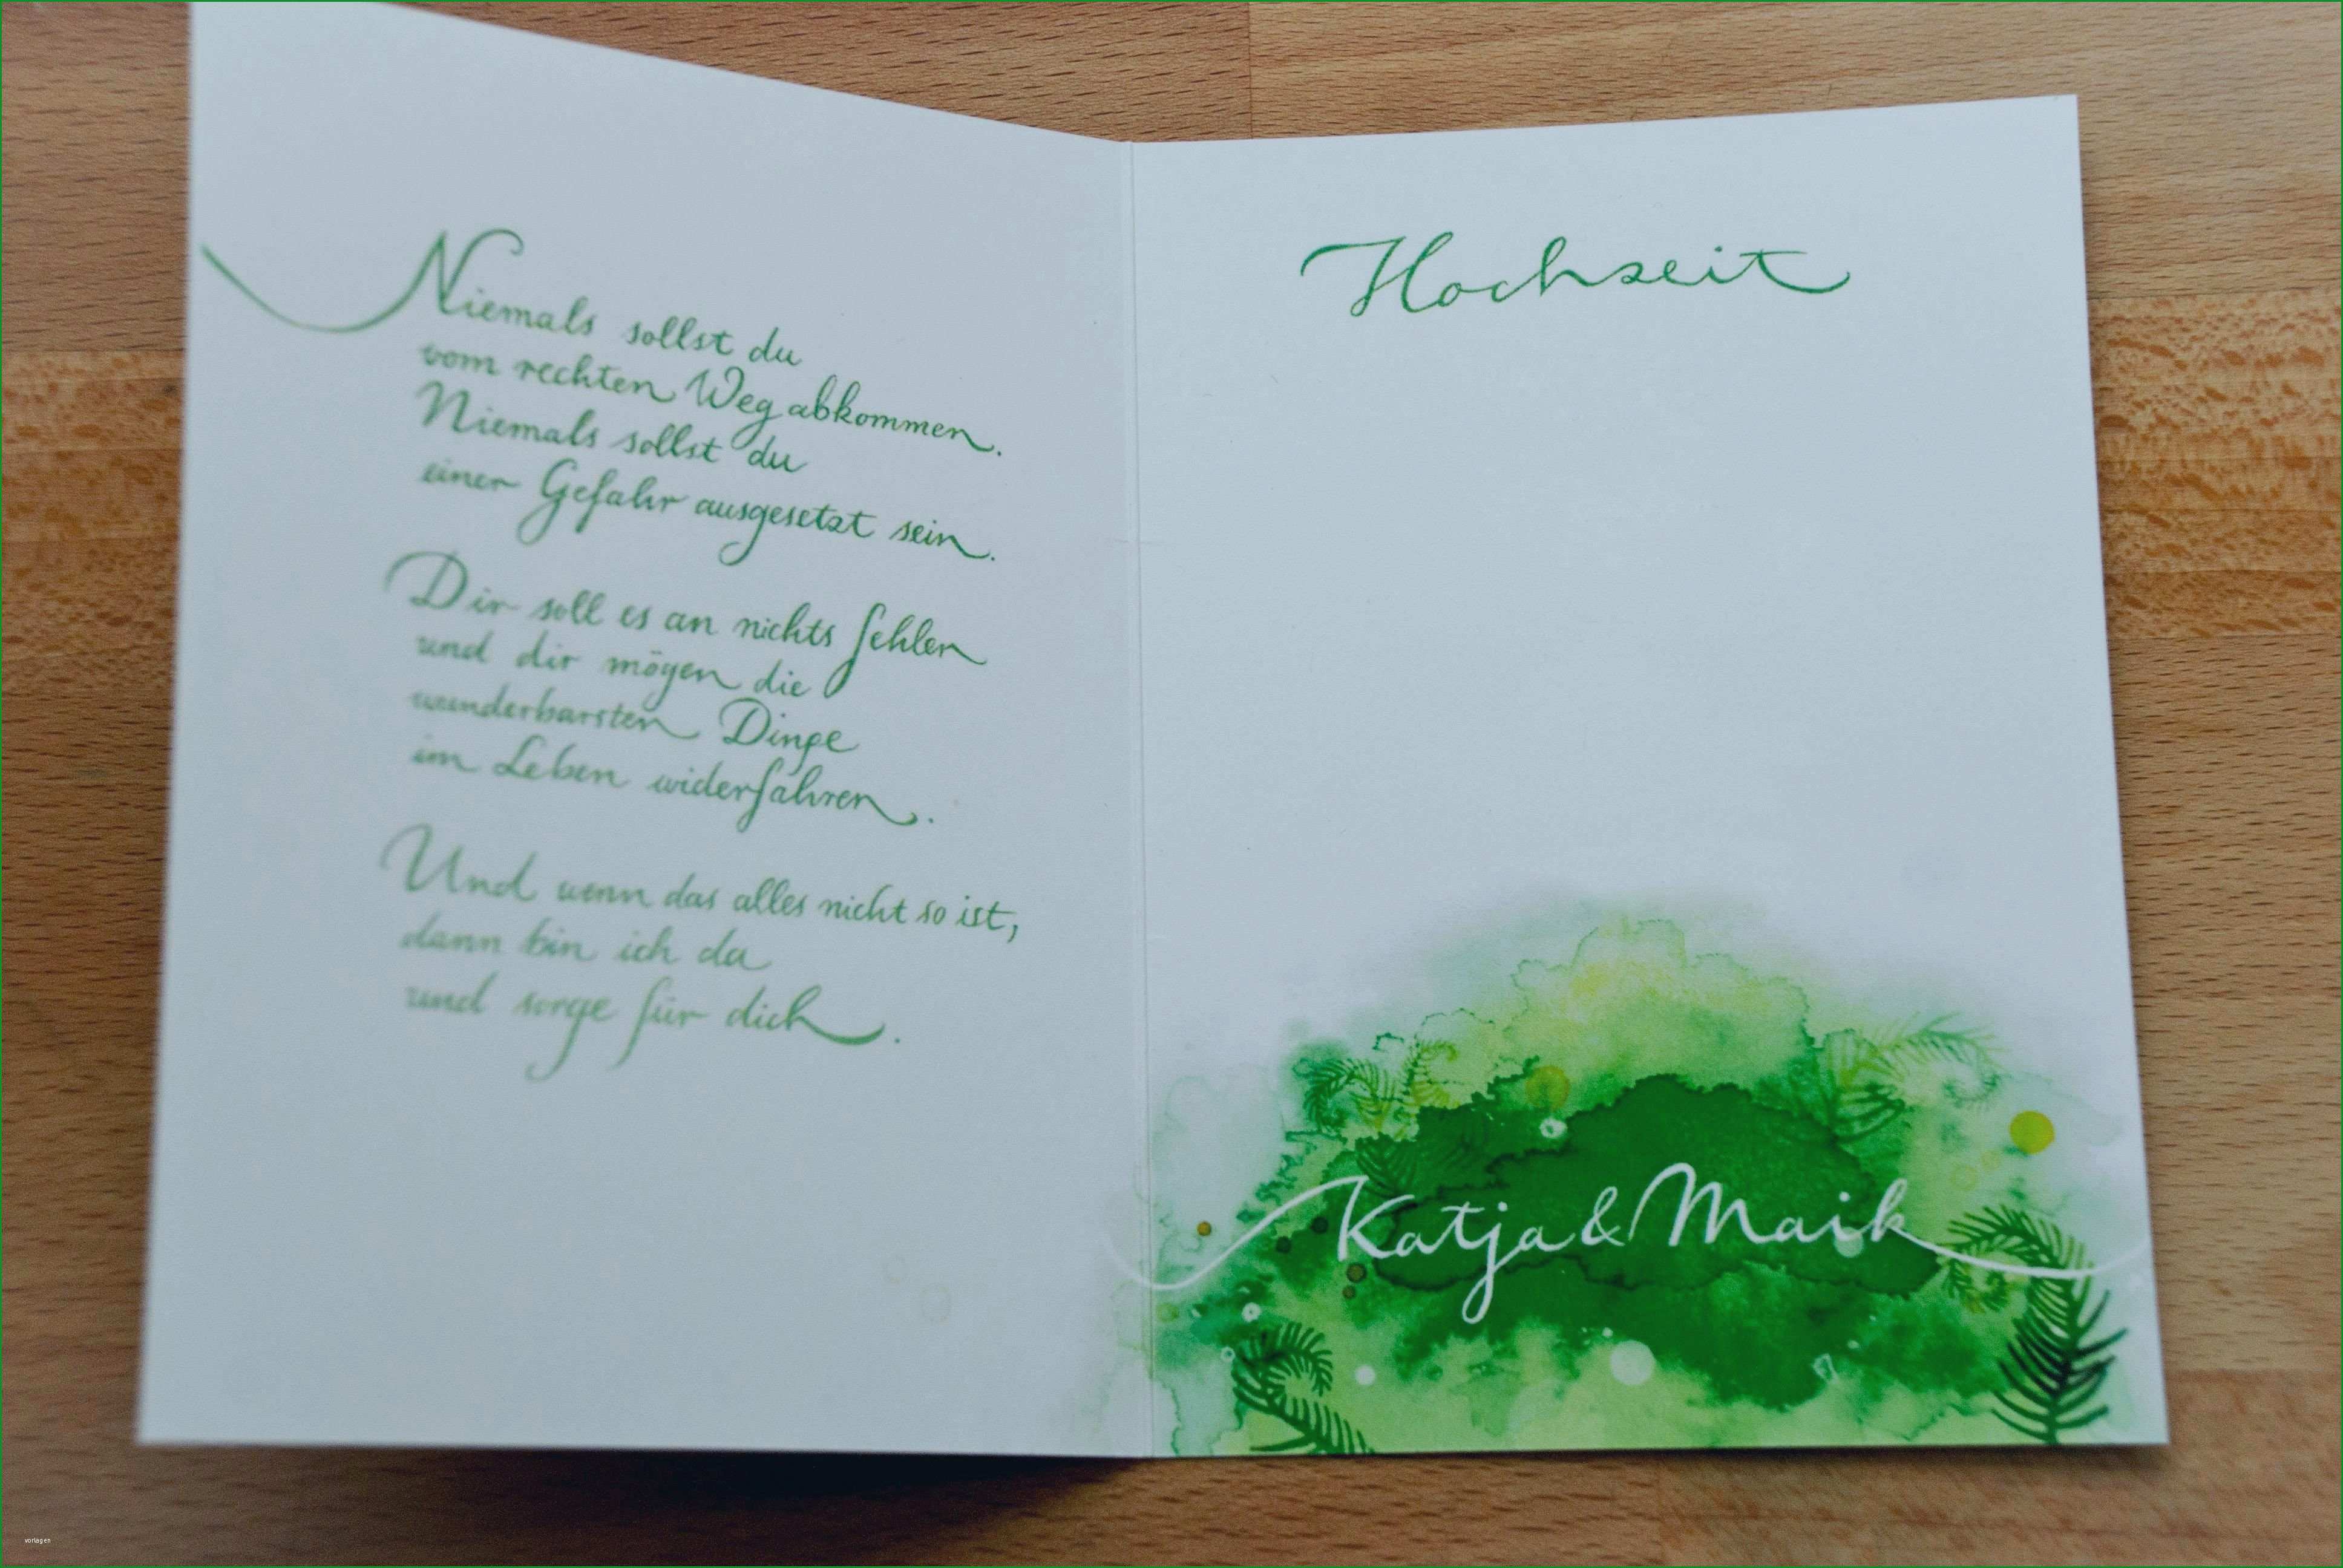 Niemals sollst du
vom rechten Weg abkommen.
Niemals sollst du
einer Gefahr ausgesetzt sein.
Dir soll es an nichts fehlen
und dir mögen die
wunderbarsten Dinge
im Leben widerfahren.
Und wenn das alles nicht so ist,
dann bin ich da
und sorge für dich.
Hochzeit
Katja & Maik
vorlagen